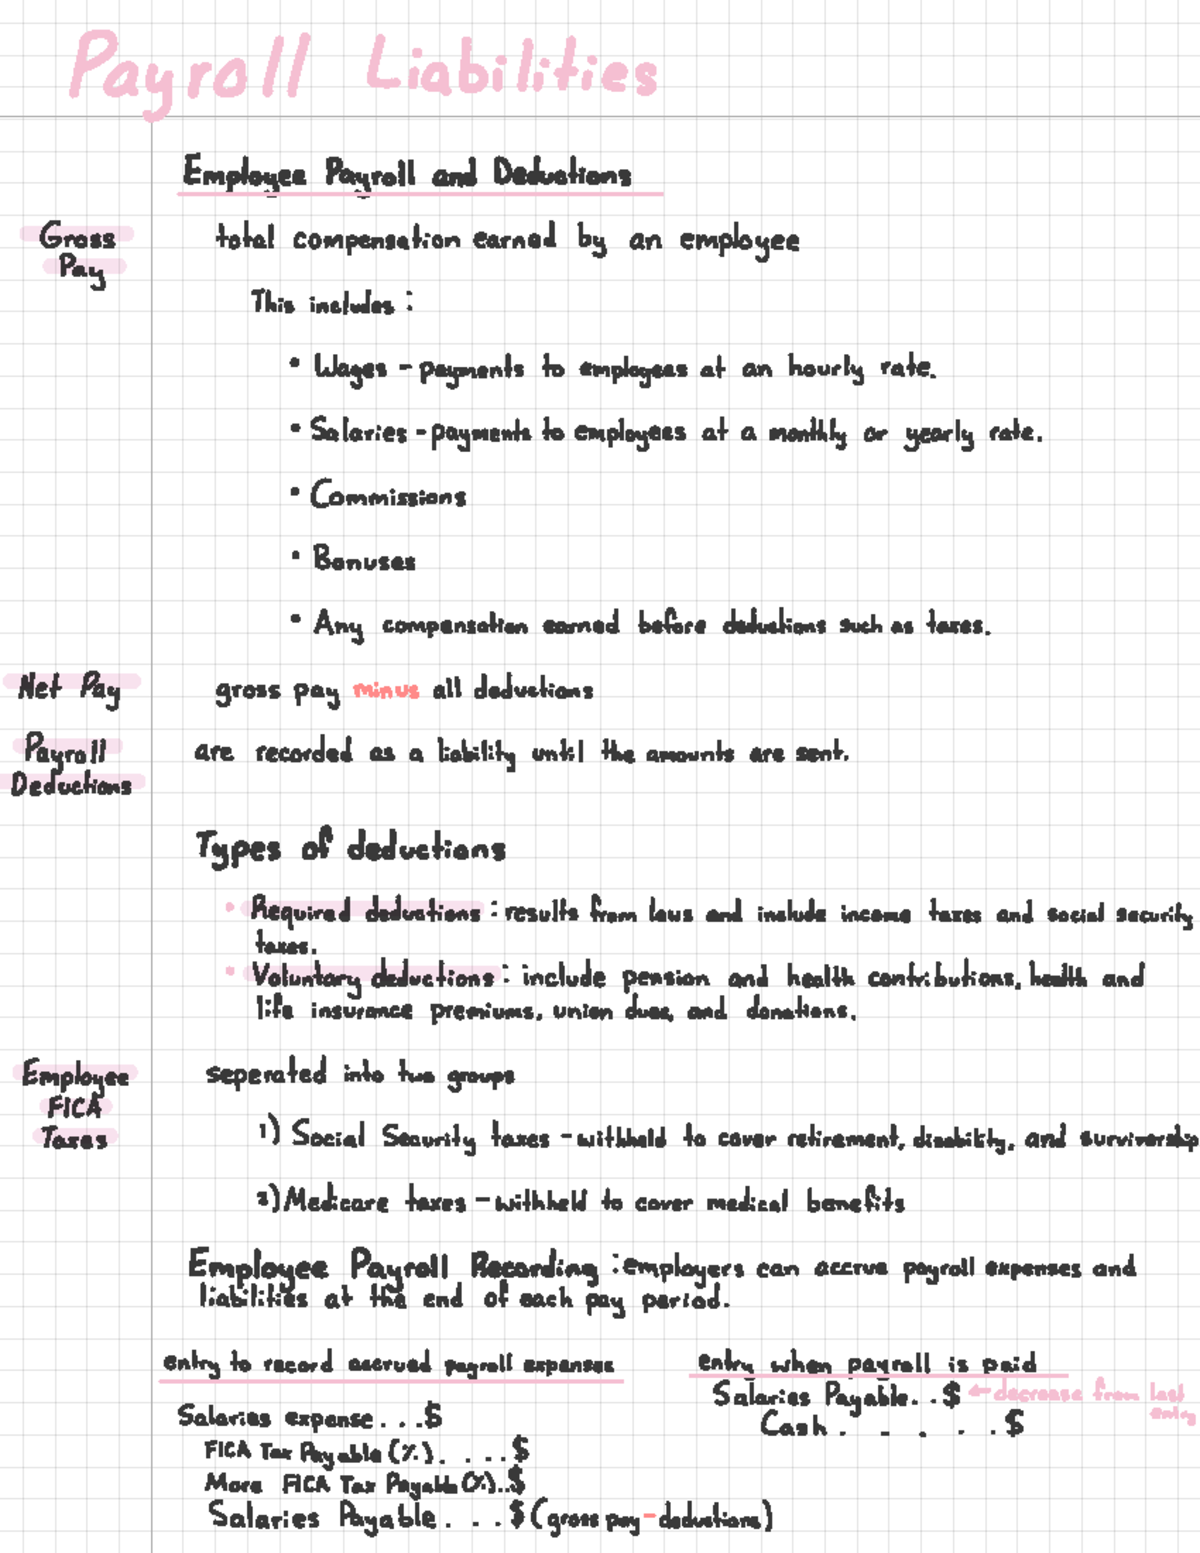 Payroll Liabilities
Employee Payroll and Deductions
Gross Pay
total compensation earned by an employee
This includes :
• Wages - payments to employees at an hourly rate.
• Salaries - payments to employees at a monthly or yearly rate.
• Commissions
• Bonuses
• Any compensation earned before deductions such as taxes.
Net Pay
gross pay minus all deductions
Payroll Deductions
are recorded as a liability until the amounts are sent.
Types of deductions
• Required deductions : results from laws and include income taxes and social security
taxes.
• Voluntary deductions : include pension and health contributions, health and
life insurance premiums, union dues, and donations.
Employee FICA Taxes
seperated into two groups
1) Social Security taxes - withheld to cover retirement, disability, and survivorship
2) Medicare taxes - withheld to cover medical benefits
Employee Payroll Recording : employers can accrue payroll expenses and
liabilities at the end of each pay period.
entry to record accrued payroll expenses
Salaries expense . . . $
FICA Tax Payable (%) . . . . $
More FICA Tax Payable (%) . . $
Salaries Payable . . . $ (gross pay - deductions)
entry when payroll is paid
Salaries Payable . . $ ← decrease from last entry
Cash . . . . . $